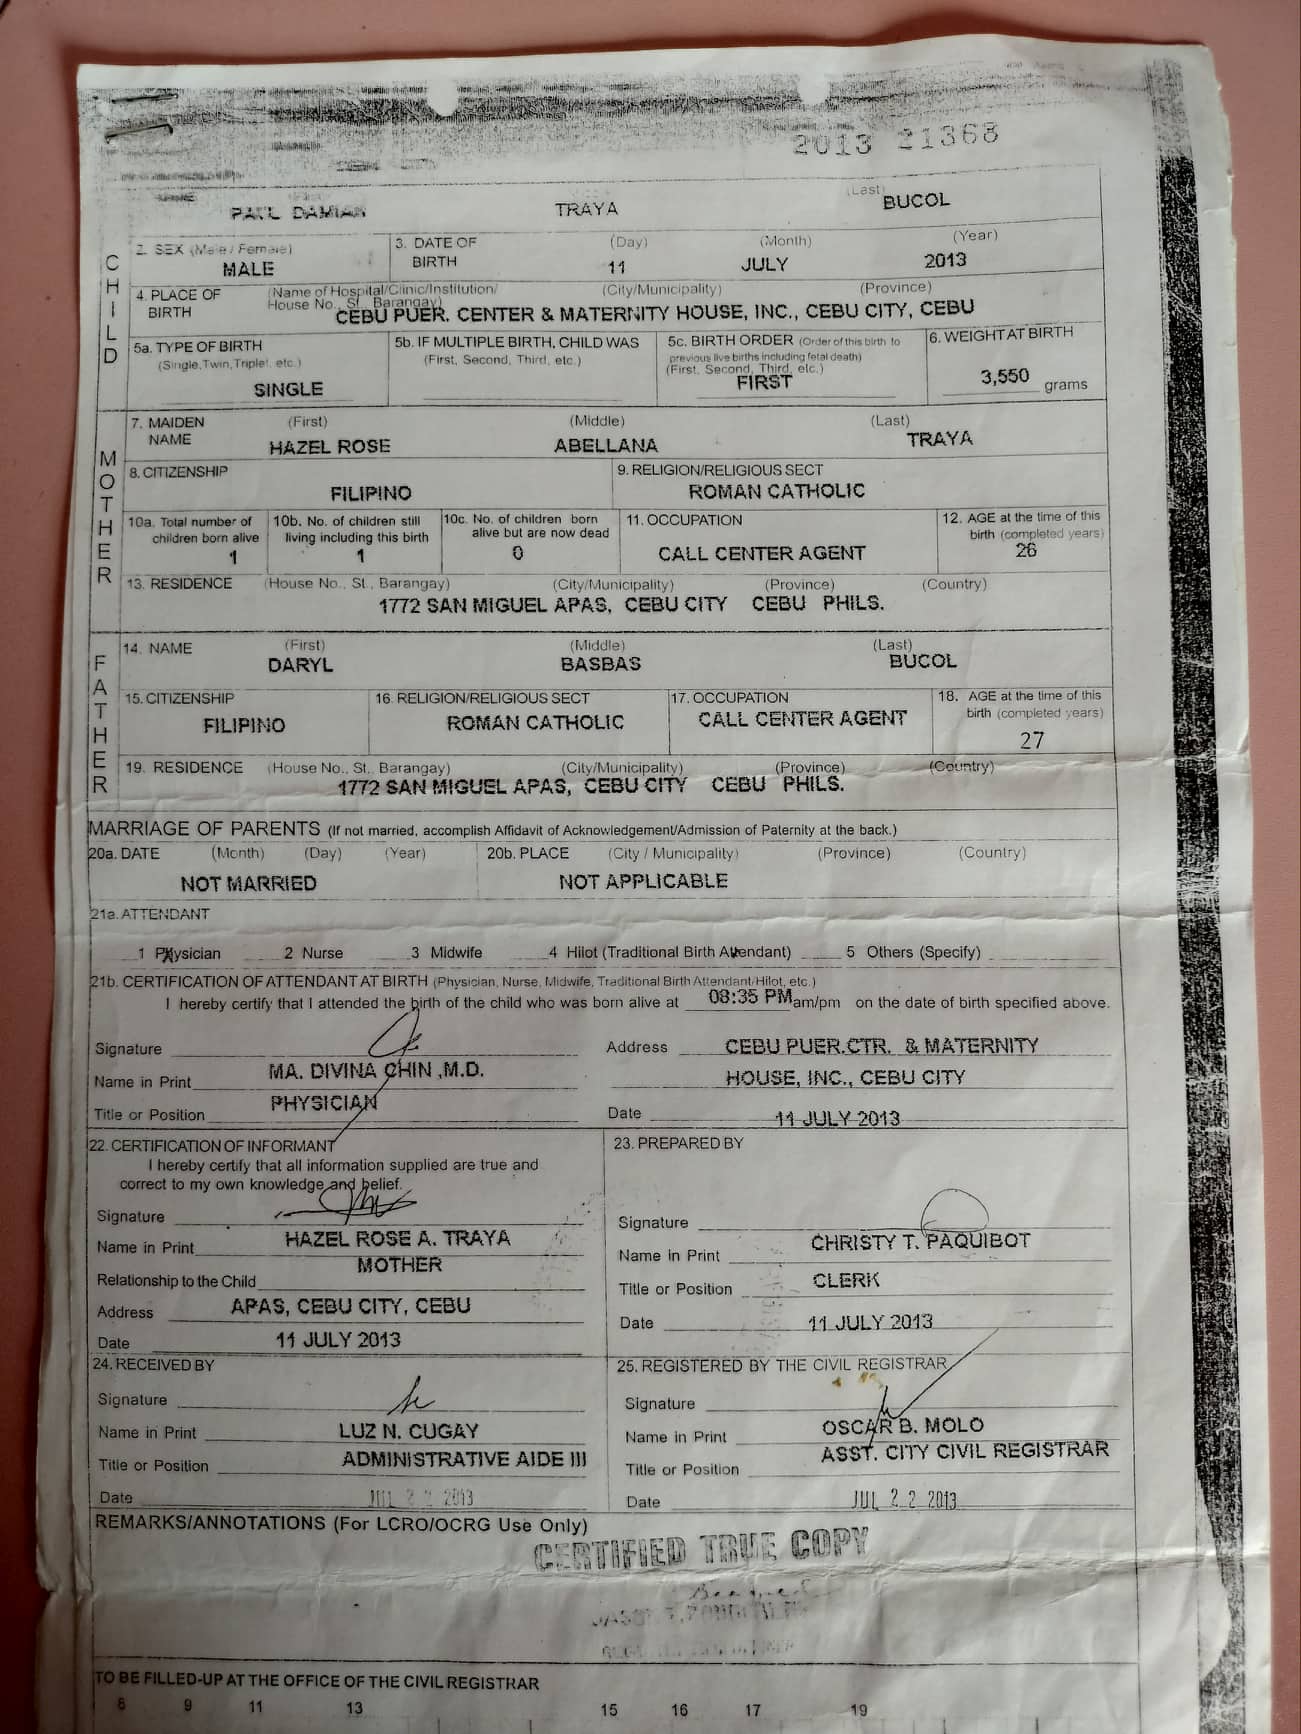 2013 21368
(Last)
PAUL DAMIAN TRAYA BUCOL
CHILD
2. SEX (Male / Female) 3. DATE OF BIRTH (Day) (Month) (Year)
MALE 11 JULY 2013
4. PLACE OF BIRTH (Name of Hospital/Clinic/Institution/ House No., St., Barangay) (City/Municipality) (Province)
CEBU PUER. CENTER & MATERNITY HOUSE, INC., CEBU CITY, CEBU
5a. TYPE OF BIRTH (Single, Twin, Triplet, etc.) 5b. IF MULTIPLE BIRTH, CHILD WAS (First, Second, Third, etc.) 5c. BIRTH ORDER (Order of this birth to previous live births including fetal death) (First, Second, Third, etc.) 6. WEIGHT AT BIRTH
SINGLE FIRST 3,550 grams
MOTHER
7. MAIDEN NAME (First) (Middle) (Last)
HAZEL ROSE ABELLANA TRAYA
8. CITIZENSHIP 9. RELIGION/RELIGIOUS SECT
FILIPINO ROMAN CATHOLIC
10a. Total number of children born alive 10b. No. of children still living including this birth 10c. No. of children born alive but are now dead 11. OCCUPATION 12. AGE at the time of this birth (completed years)
1 1 0 CALL CENTER AGENT 26
13. RESIDENCE (House No., St., Barangay) (City/Municipality) (Province) (Country)
1772 SAN MIGUEL APAS, CEBU CITY CEBU PHILS.
FATHER
14. NAME (First) (Middle) (Last)
DARYL BASBAS BUCOL
15. CITIZENSHIP 16. RELIGION/RELIGIOUS SECT 17. OCCUPATION 18. AGE at the time of this birth (completed years)
FILIPINO ROMAN CATHOLIC CALL CENTER AGENT 27
19. RESIDENCE (House No., St., Barangay) (City/Municipality) (Province) (Country)
1772 SAN MIGUEL APAS, CEBU CITY CEBU PHILS.
MARRIAGE OF PARENTS (If not married, accomplish Affidavit of Acknowledgement/Admission of Paternity at the back.)
20a. DATE (Month) (Day) (Year) 20b. PLACE (City / Municipality) (Province) (Country)
NOT MARRIED NOT APPLICABLE
21a. ATTENDANT
1 Physician 2 Nurse 3 Midwife 4 Hilot (Traditional Birth Attendant) 5 Others (Specify)
21b. CERTIFICATION OF ATTENDANT AT BIRTH (Physician, Nurse, Midwife, Traditional Birth Attendant/Hilot, etc.)
I hereby certify that I attended the birth of the child who was born alive at 08:35 PM am/pm on the date of birth specified above.
Signature Address CEBU PUER.CTR. & MATERNITY
Name in Print MA. DIVINA CHIN ,M.D. HOUSE, INC., CEBU CITY
Title or Position PHYSICIAN Date 11 JULY 2013
22. CERTIFICATION OF INFORMANT
I hereby certify that all information supplied are true and
correct to my own knowledge and belief.
Signature
Name in Print HAZEL ROSE A. TRAYA
Relationship to the Child MOTHER
Address APAS, CEBU CITY, CEBU
Date 11 JULY 2013
23. PREPARED BY
Signature
Name in Print CHRISTY T. PAQUIBOT
Title or Position CLERK
Date 11 JULY 2013
24. RECEIVED BY
Signature
Name in Print LUZ N. CUGAY
Title or Position ADMINISTRATIVE AIDE III
Date JUL 2 2 2013
25. REGISTERED BY THE CIVIL REGISTRAR
Signature
Name in Print OSCAR B. MOLO
Title or Position ASST. CITY CIVIL REGISTRAR
Date JUL 2 2 2013
REMARKS/ANNOTATIONS (For LCRO/OCRG Use Only)
CERTIFIED TRUE COPY
TO BE FILLED-UP AT THE OFFICE OF THE CIVIL REGISTRAR
8 9 11 13 15 16 17 19